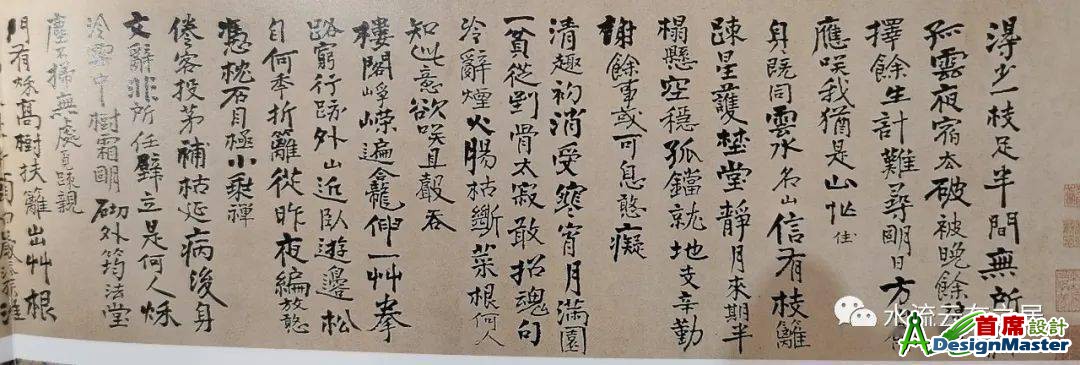 得止一枝足半間無所
孤雲夜宿太破被晚餘
擇餘生計難尋明日方
應咲我猶是山住
身既同雲水名山信有枝離
疎星護埜堂靜月來期半
榻懸空穩孤鐺就地支辛勤
謝餘事或可息憨癡
清趣初消受寒宵月滿園
一貧從到骨太寂敢招魂句
冷辭煙火腸枯斷菜根何人
知此意欲咲且聲吞
樓閣崢嶸遍龕俯一艸拳
路窮行跡外山近臥遊邊松
自何季折籬從昨夜編放憨
憑枕石目極小乘禪
倦客投茅補枯延病後身
文辭非所任壁立是何人秌
冷雲中樹霜明砌外筠法堂
塵不掃無處覓疎親
門有秌高樹扶籬出艸根
水流云在
首席設計
ADesignMaster